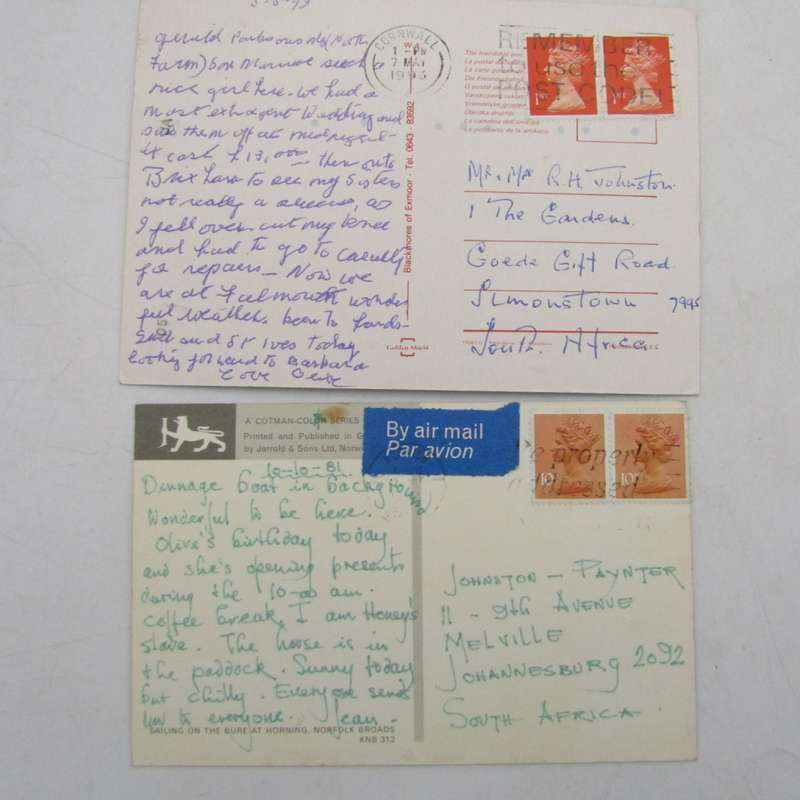 had a
most
Wedding and
saw them off at midnight
It cost £13,000 — then onto
Brixham to see my sisters
not really a success, as
I fell over, cut my knee
and had to go to
for repairs — Now we
are at Falmouth
weather, been to Lands
End and St Ives today
looking forward to Barbara
Love
CORNWALL
1 - PM
7 MAY
1993
REMEMBER
to use the
POSTCODE
1ST
1ST
Blackmores of Exmoor - Tel. 0643 - 83592
Golden Shield
R.H. Johnston
1 The Gardens.
Goede Gift Road.
Simonstown 7995
South Africa
A COTMAN-COLOR SERIES
Printed and Published in G
by Jarrold & Sons Ltd, Norwi
By air mail
Par avion
properly
addressed
10P
10P
10-10-81
Dinnage boat in background
Wonderful to be here.
Olive's birthday today
and she's opening presents
during the 10-00 am.
coffee break. I am Honey's
slave. The horse is in
the paddock. Sunny today
but chilly. Everyone sends
luv to everyone. Jean -
SAILING ON THE BURE AT HORNING, NORFOLK BROADS
KNB 312
JOHNSTON - PAYNTER
11 - 9th AVENUE
MELVILLE
JOHANNESBURG 2092
SOUTH AFRICA.